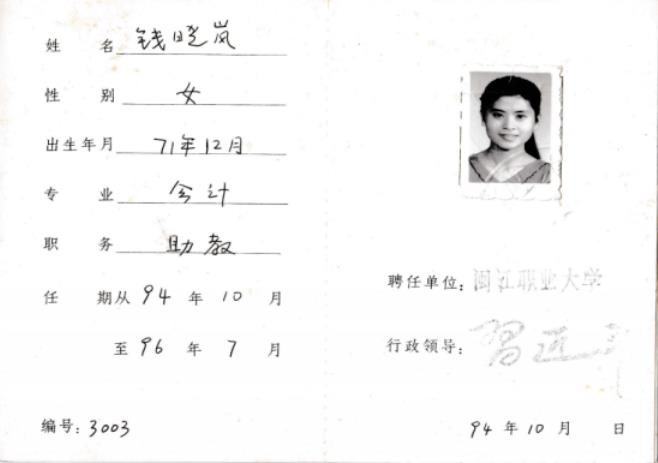 姓 名 钱晓岚
性 别 女
出生年月 71年12月
专 业 会计
职 务 助教
任 期从 94 年 10 月
至 96 年 7 月
编号:3003
聘任单位:闽江职业大学
行政领导:习近平
94 年 10 月 日